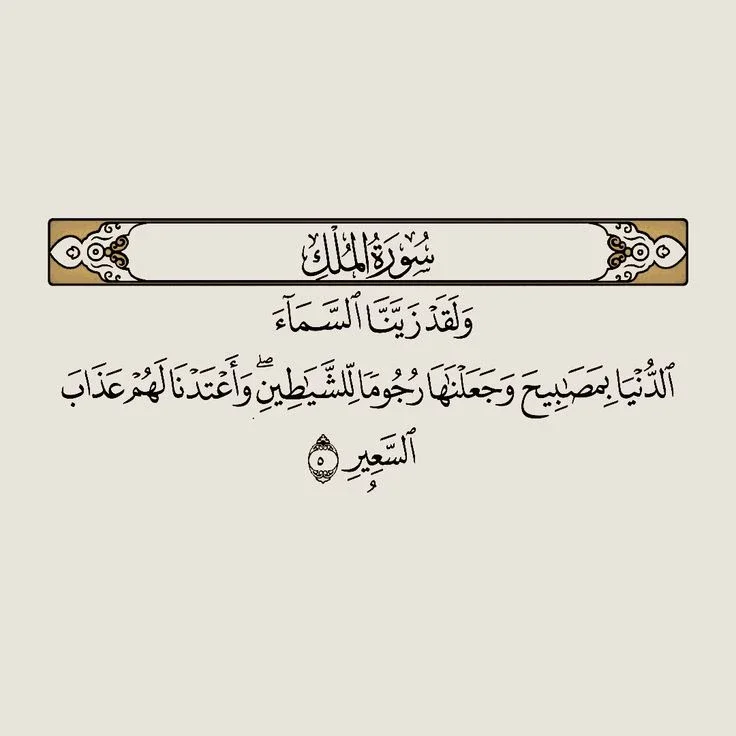 سُورَةُ الْمُلْكِ
وَلَقَدْ زَيَّنَّا ٱلسَّمَآءَ
ٱلدُّنْيَا بِمَصَٰبِيحَ وَجَعَلْنَٰهَا رُجُومًا لِّلشَّيَٰطِينِ ۖ وَأَعْتَدْنَا لَهُمْ عَذَابَ
ٱلسَّعِيرِ ٥